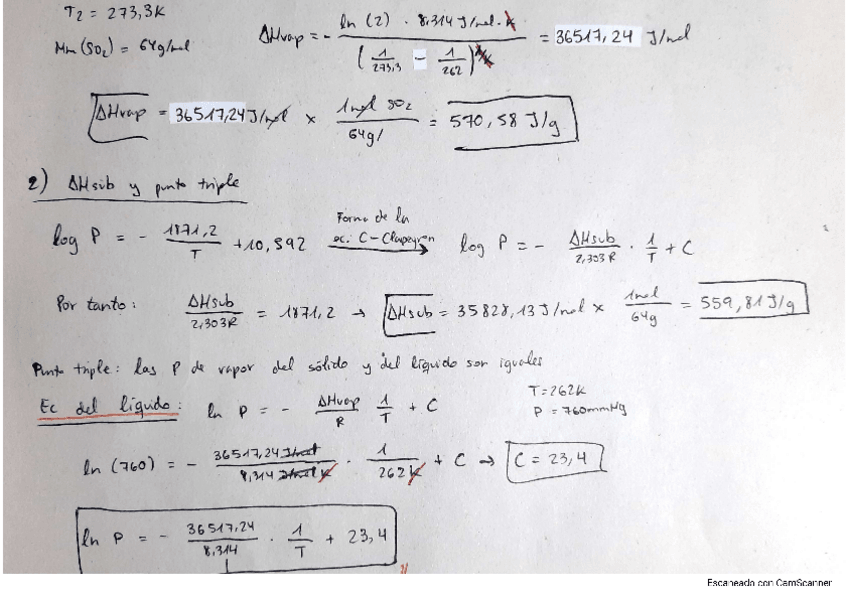 T2 = 273,3K
Mm (SO2) = 64g/mol
ΔHvap = - ln (2) · 8,314 J/mol·K / (1/273,3 - 1/262) 1/K = 36517,24 J/mol
ΔHvap = 36517,24 J/mol x 1mol SO2 / 64g/ = 570,58 J/g
2) ΔHsub y punto triple
log P = - 1871,2 / T + 10,892 Forma de la ec. C-Clapeyron log P = - ΔHsub / 2,303R · 1/T + C
Por tanto: ΔHsub / 2,303R = 1871,2 → ΔHsub = 35828,13 J/mol x 1mol / 64g = 559,81 J/g
Punto triple: las P de vapor del sólido y del líquido son iguales
Ec del líquido: ln P = - ΔHvap / R 1/T + C T=262K
P = 760mmHg
ln (760) = - 36517,24 J/mol / 8,314 J/mol K · 1 / 262K + C → C = 23,4
ln P = - 36517,24 / 8,314 · 1/T + 23,4
Escaneado con CamScanner